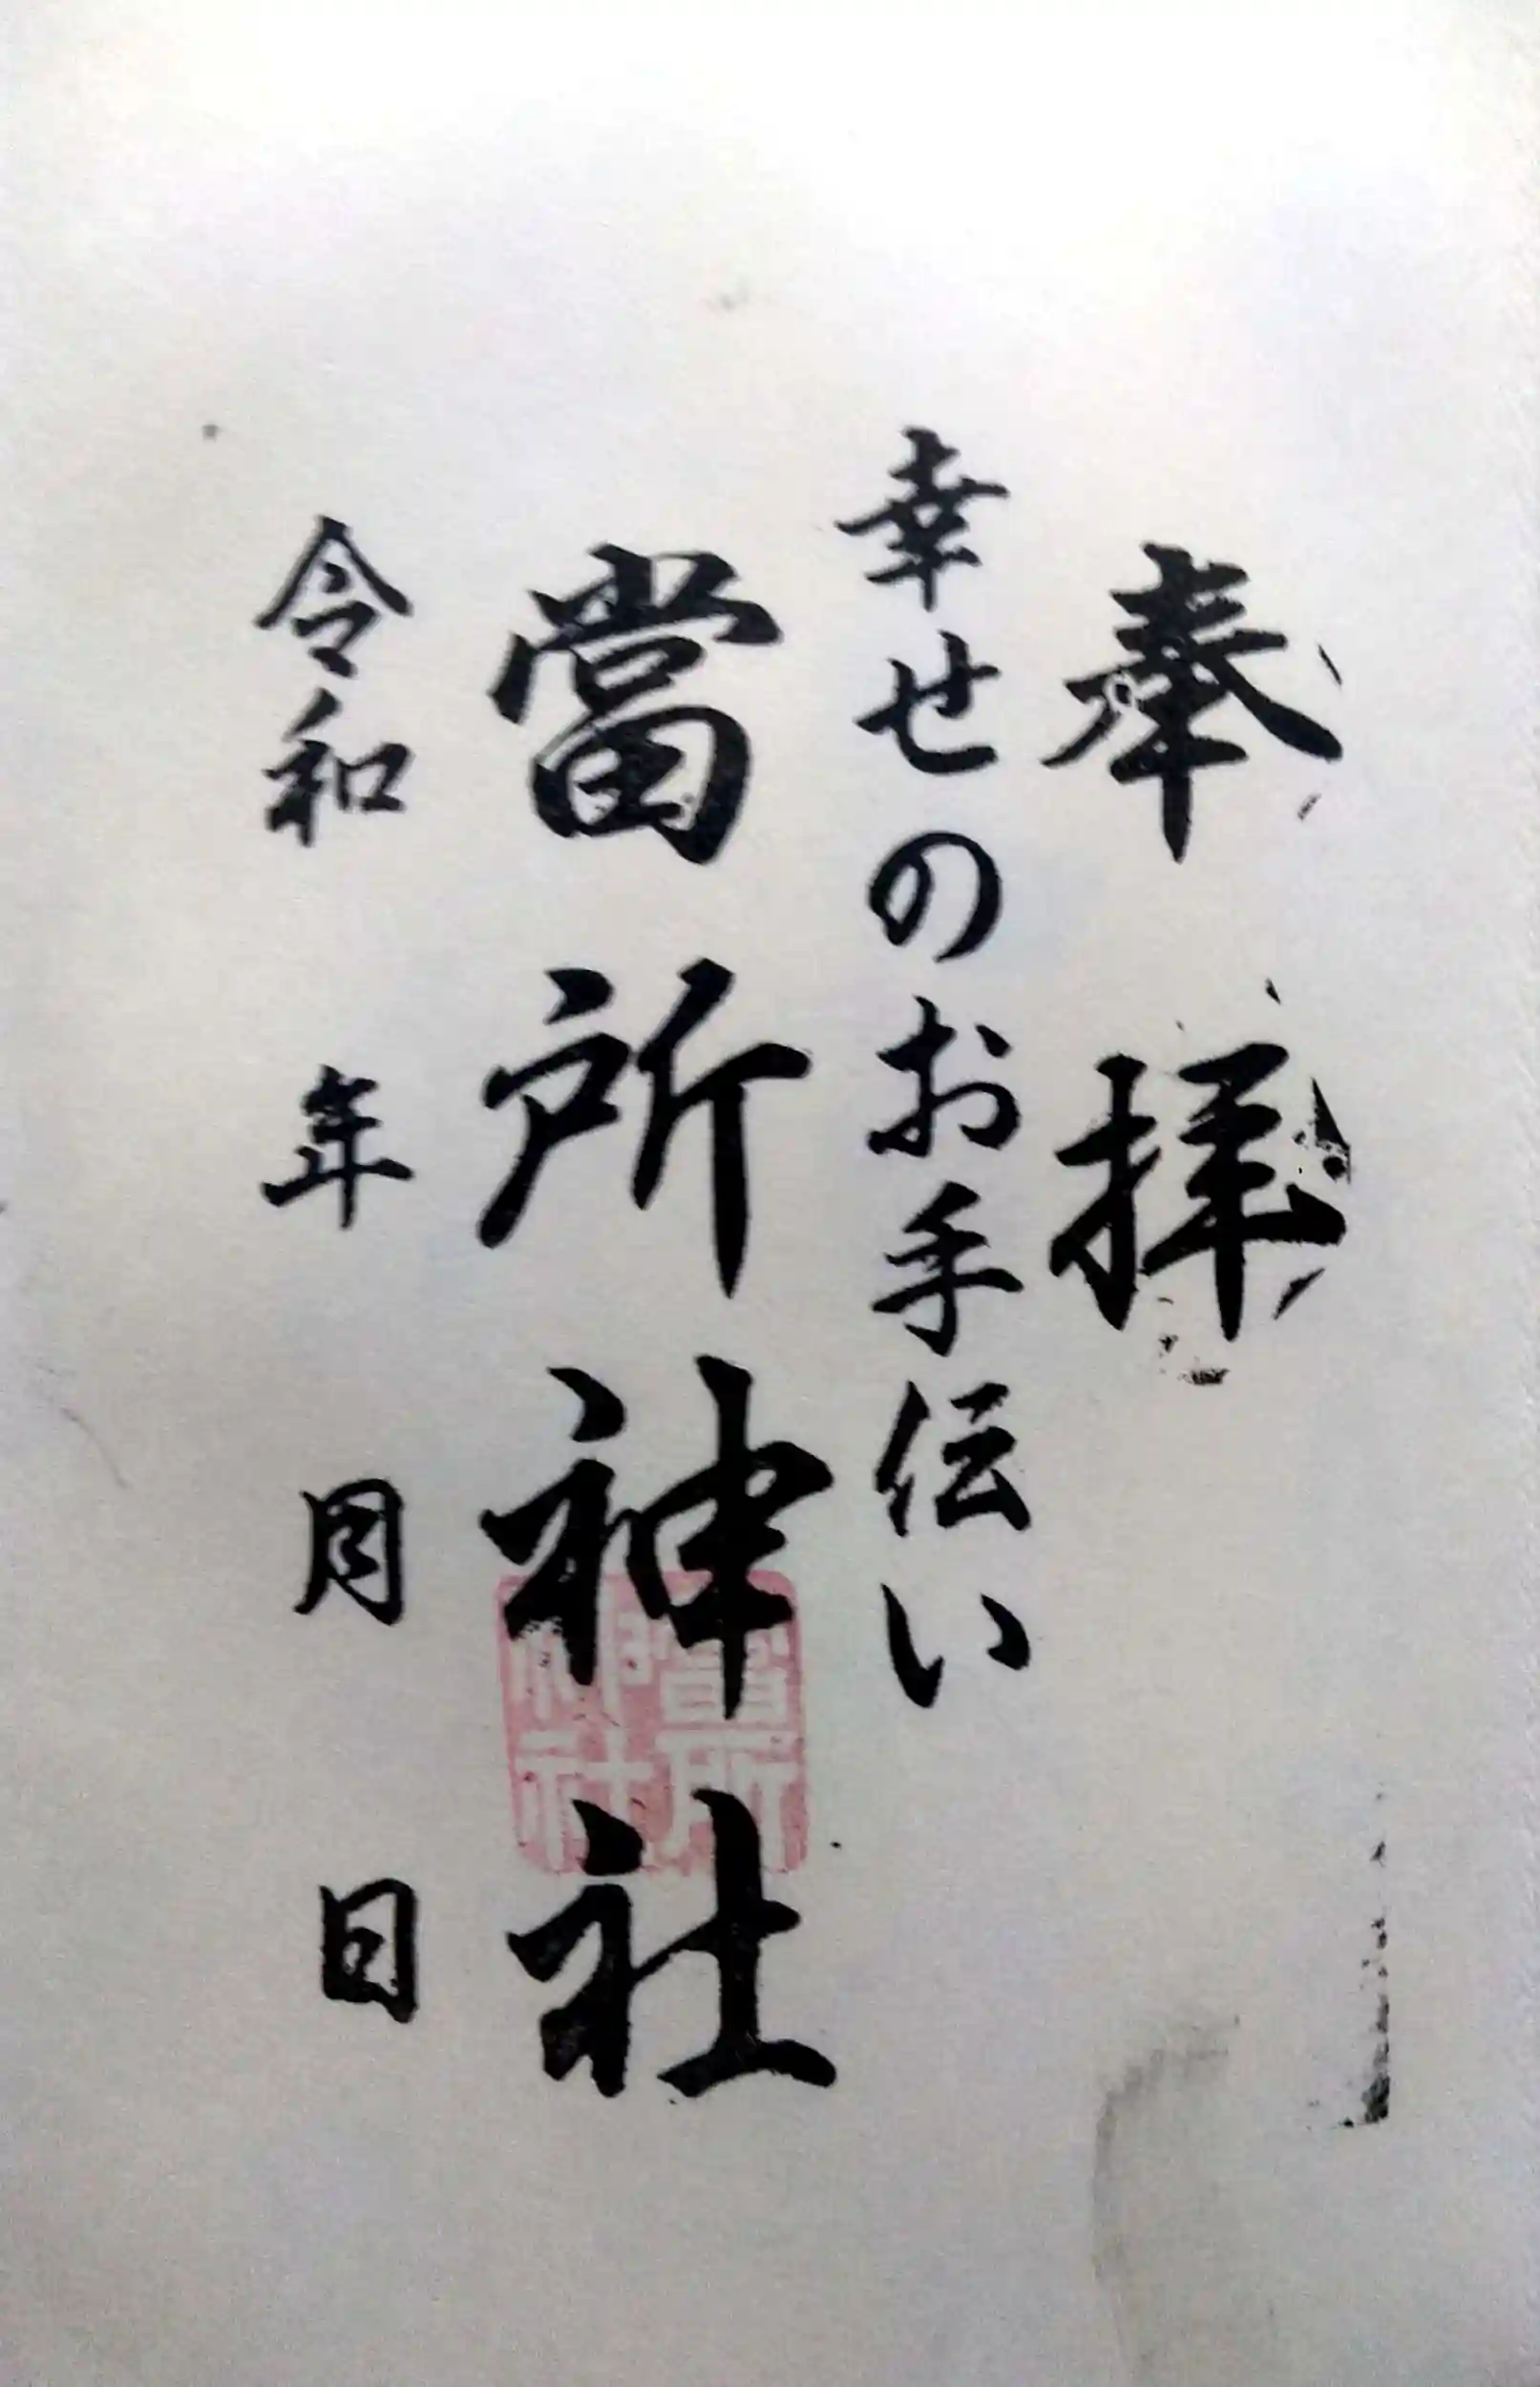 奉拝
幸せのお手伝い
當所神社
當所
神社
令和 年 月 日